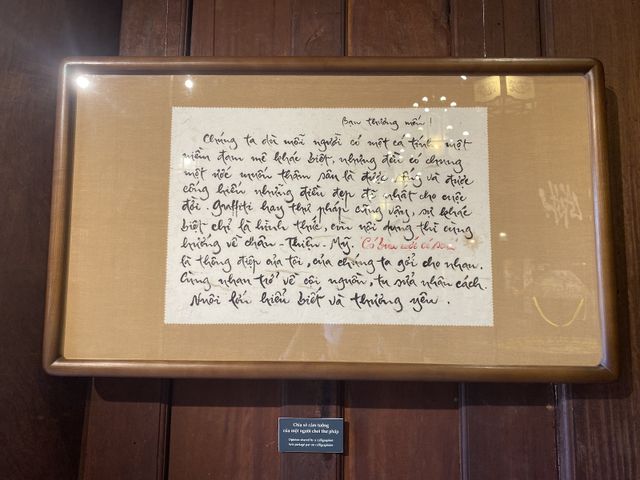 Bạn thương mến!
Chúng ta dù mỗi người có một cá tính một
niềm đam mê khác biệt, nhưng đều có chung
một ước muốn thâm sâu là được sống và được
cống hiến những điều đẹp đẽ nhất cho cuộc
đời. Graffiti hay thư pháp cũng vậy, sự khác
biệt chỉ là hình thức, còn nội dung thì cùng
hướng về chân - Thiện - Mỹ. Có bữa mới có
là thông điệp của tôi, của chúng ta gởi cho nhau.
Cùng nhau trở về cội nguồn, tu sửa nhân cách.
Nuôi lớn hiểu biết và thương yêu.
Chia sẻ cảm tưởng
của một người chơi thư pháp
Opinion shared by a calligraphist